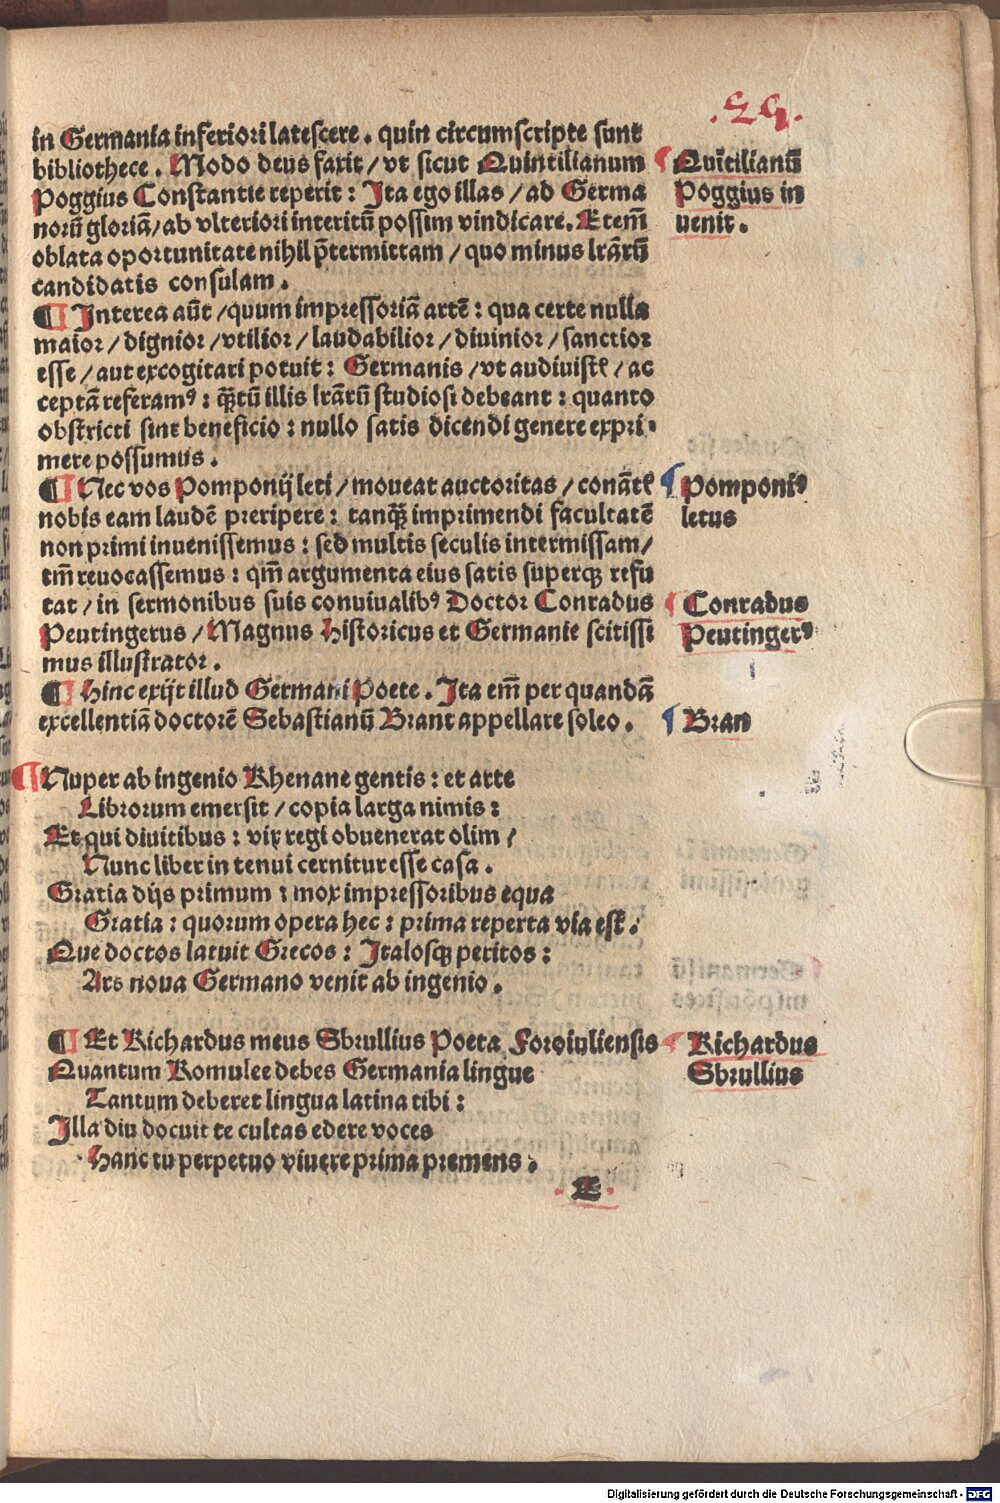 .25.
in Germania inferiori latescere. quin circumscripte sunt
bibliothece. Modo deus faxit/ vt sicut Quintilianum
Poggius Constantie reperit: Ita ego illas/ad Germa
norū gloriā/ab vlteriori interitū possim vindicare. Etem̄
oblata oportunitate nihil p̄termittam/quo minus lr̄arū
candidatis consulam.
¶ Interea aūt/quum impressoriā artē: qua certe nulla
maior/dignior/vtilior/laudabilior/diuinior/sanctior
esse/aut excogitari potuit: Germanis/vt audiuistꝭ/ac
ceptā referamꝰ: q̄ꝫtū illis lr̄arū studiosi debeant: quanto
obstricti sint beneficio: nullo satis dicendi genere expri-
mere possumus.
¶ Nec vos Pomponij leti/moueat auctoritas/conātꝭ
nobis eam laudē preripere: tanq̄ꝫ imprimendi facultatē
non primi inuenissemus: sed multis seculis intermissam/
tm̄ reuocassemus: qm̄ argumenta eius satis superqꝫ refu
tat/in sermonibus suis conuiualibꝰ Doctor Conradus
Peutingerus/Magnus Historicus et Germanie scitissi
mus illustrator.
¶ Hinc exijt illud Germani Poete. Ita em̄ per quandā
excellentiā doctorē Sebastianū Brant appellare soleo.
¶ Nuper ab ingenio Rhenane gentis: et arte
Librorum emersit/copia larga nimis:
Et qui diuitibus: vix regi obuenerat olim/
Nunc liber in tenui cernitur esse casa.
Gratia dijs primum: mox impressoribus equa
Gratia: quorum opera hec: prima reperta via est.
Que doctos latuit Grecos: Italosqꝫ peritos:
Ars noua Germano venit ab ingenio.
¶ Et Richardus meus Sbrullius Poeta Foroiuliensis
Quantum Romulee debes Germania lingue
Tantum deberet lingua latina tibi:
Illa diu docuit te cultas edere voces
Hanc tu perpetuo viuere prima premens.
E
Quītilianū
Poggius in
uenit.
Pomponiꝰ
letus
Conradus
Peutingerꝰ
Bran
Richardus
Sbrullius
Digitalisierung gefördert durch die Deutsche Forschungsgemeinschaft - DFG